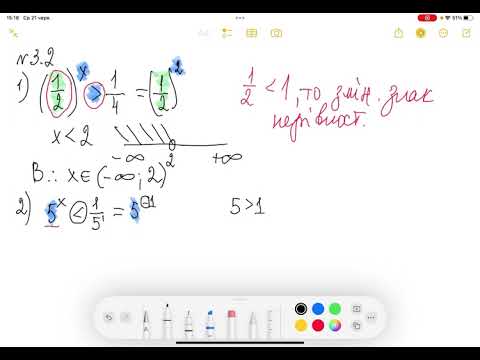 15:18 Ср 21 черв. 51%
N3.2
1) (1/2)^x > 1/4 = (1/2)^2
1/2 < 1, то змін. знак
нерівност.
x < 2
-∞ 2 +∞
В∴ x∈(-∞; 2)
2) 5^x < 1/5^1 = 5^-1
5>1